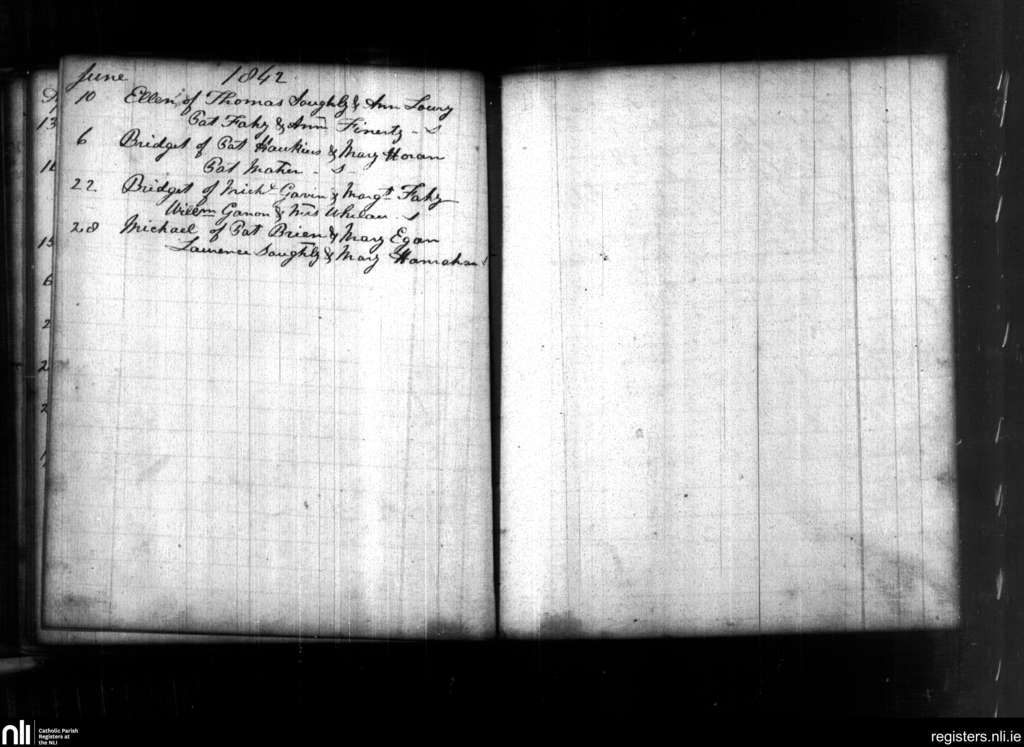 June 1842
10 Ellen of Thomas Soughly & Ann Lowry
Pat Fahy & Ann Finerty - S
6 Bridget of Pat Hawkins & Mary Horan
Pat Maher - S
22 Bridget of Michl Gavin & Margt Fahy
Willm Ganon & Mrs Whelan S
28 Michael of Pat Brien & Mary Egan
Laurence Soughly & Mary Hanrahan
13
15
6
2
2
2
nli Catholic Parish
Registers at
the NLI
registers.nli.ie